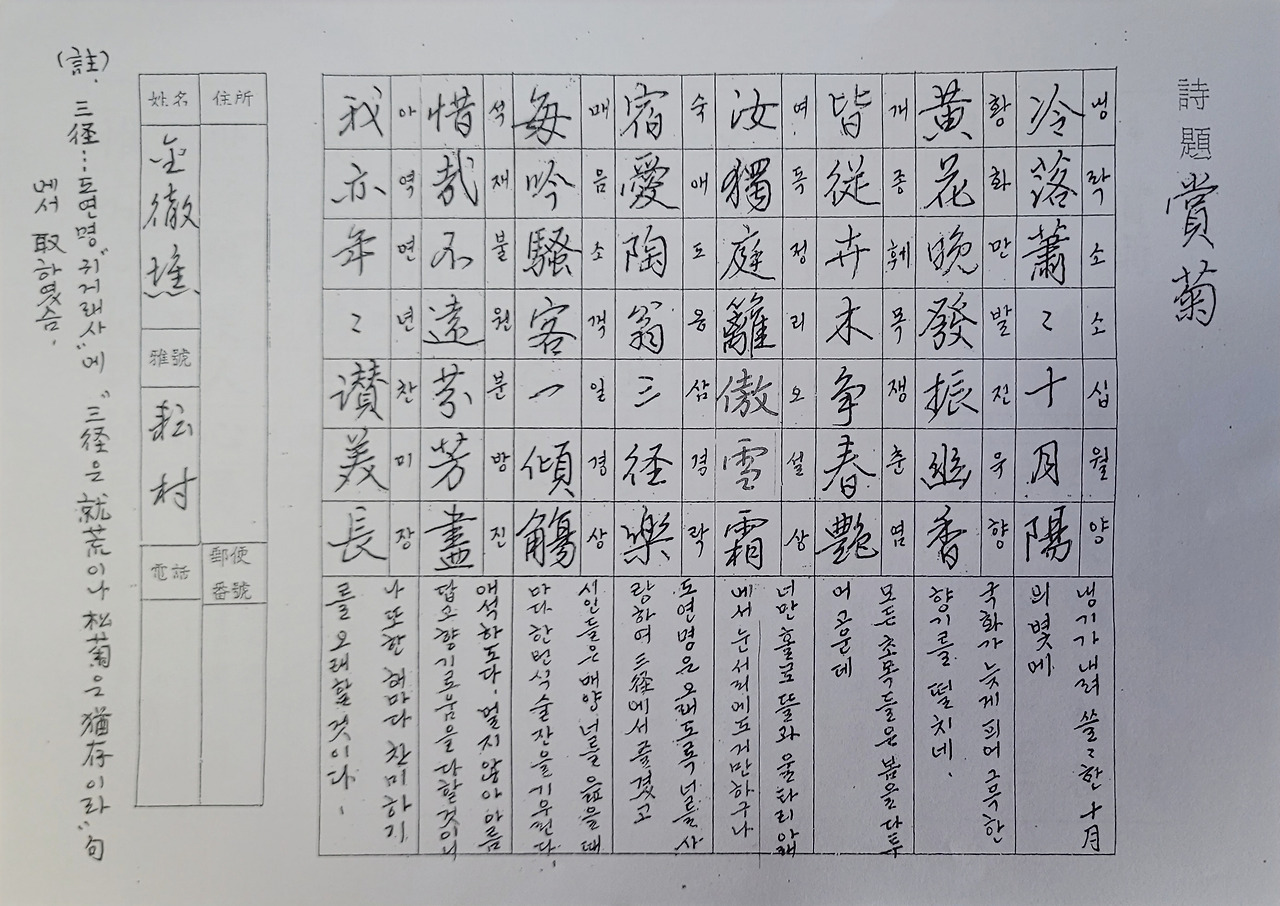 詩題 賞菊
冷落蕭〻十月陽
냉락소소십월양
냉기가 내려 쓸〻한 十月
의 볕에
黃花晩發振幽香
황화만발진유향
국화가 늦게 피어 그윽한
향기를 떨치네.
皆從卉木爭春艷
개종훼목쟁춘염
모든 초목들은 봄을 다투
어 고운데
汝獨庭籬傲雪霜
여독정리오설상
너만 홀로 뜰과 울타리 아래
에서 눈 서리에도 거만하구나
宿愛陶翁三径樂
숙애도옹삼경락
도연명은 오래도록 너를 사
랑하여 三径에서 즐겼고
每吟騷客一傾觴
매음소객일경상
시인들은 매양 너를 읊을때
마다 한번식 술잔을 기우린다.
惜哉不遠芬芳盡
석재불원분방진
애석하도다. 멀지 않아 아름
답고 향기로움을 다할것이니
我亦年〻讃美長
아역연년찬미장
나 또한 해마다 찬미하기
를 오래할 것이다.
住所
郵便番號
姓名 金徹
雅號 耘村
電話
(註). 三径…도연명"귀거래사"에 "三径은 就荒이나 松菊은 猶存이라"句
에서 取하였슴.